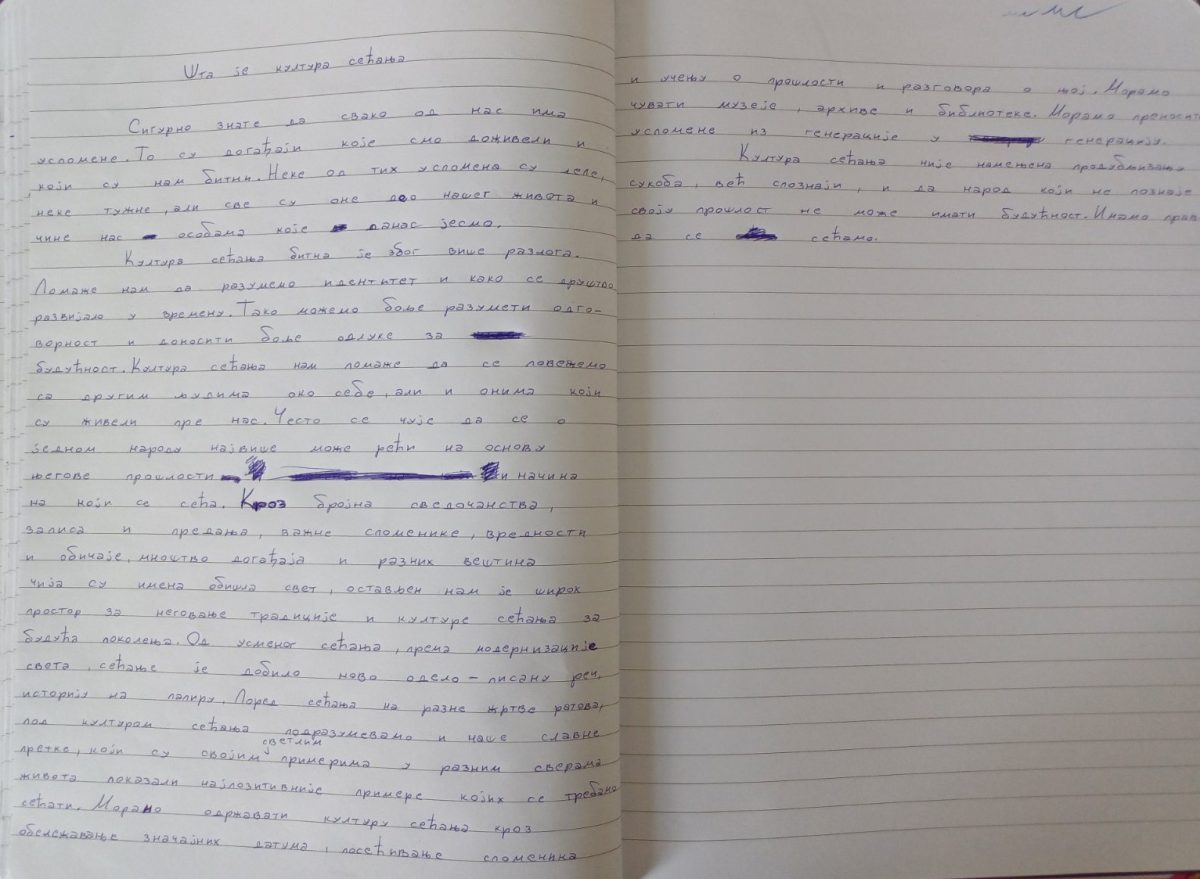 Шта је култура сећања
Сигурно знате да свако од нас има
успомене. То су догађаји које смо доживели и
који су нам битни. Неке од тих успомена су лепе,
неке тужне, али све су оне део нашег живота и
чине нас особама које данас јесмо.
Култура сећања битна је због више разлога.
Помаже нам да разумемо идентитет и како се друштво
развијало у времену. Тако можемо боље разумети одго-
ворност и доносити боље одлуке за
будућност. Култура сећања нам помаже да се повежемо
са другим људима око себе, али и онима који
су живели пре нас. Често се чује да се о
једном народу највише може рећи на основу
његове прошлости и начина
на који се сећа. Кроз бројна сведочанства,
записа и предања, важне споменике, вредности
и обичаје, мноштво догађаја и разних вештина
чија су имена обишла свет, остављен нам је широк
простор за неговање традиције и културе сећања за
будућа поколења. Од усменог сећања, према модернизацији
света, сећање је добило ново одело – писану реч,
историју на папиру. Поред сећања на разне жртве ратова,
под културом сећања подразумевамо и наше славне
претке, који су својим светлим примерима у разним сверама
живота показали најпозитивније примере којих се требамо
сећати. Морамо одржавати културу сећања кроз
обележавање значајних датума, посећивање споменика
и учењу о прошлости и разговора о њој. Морамо
чувати музеје, архиве и библиотеке. Морамо преносити
успомене из генерације у генерацију.
Култура сећања није намењена продубљивању
сукоба, већ спознаји, и да народ који не познаје
своју прошлост не може имати будућност. Имамо право
да се сећамо.